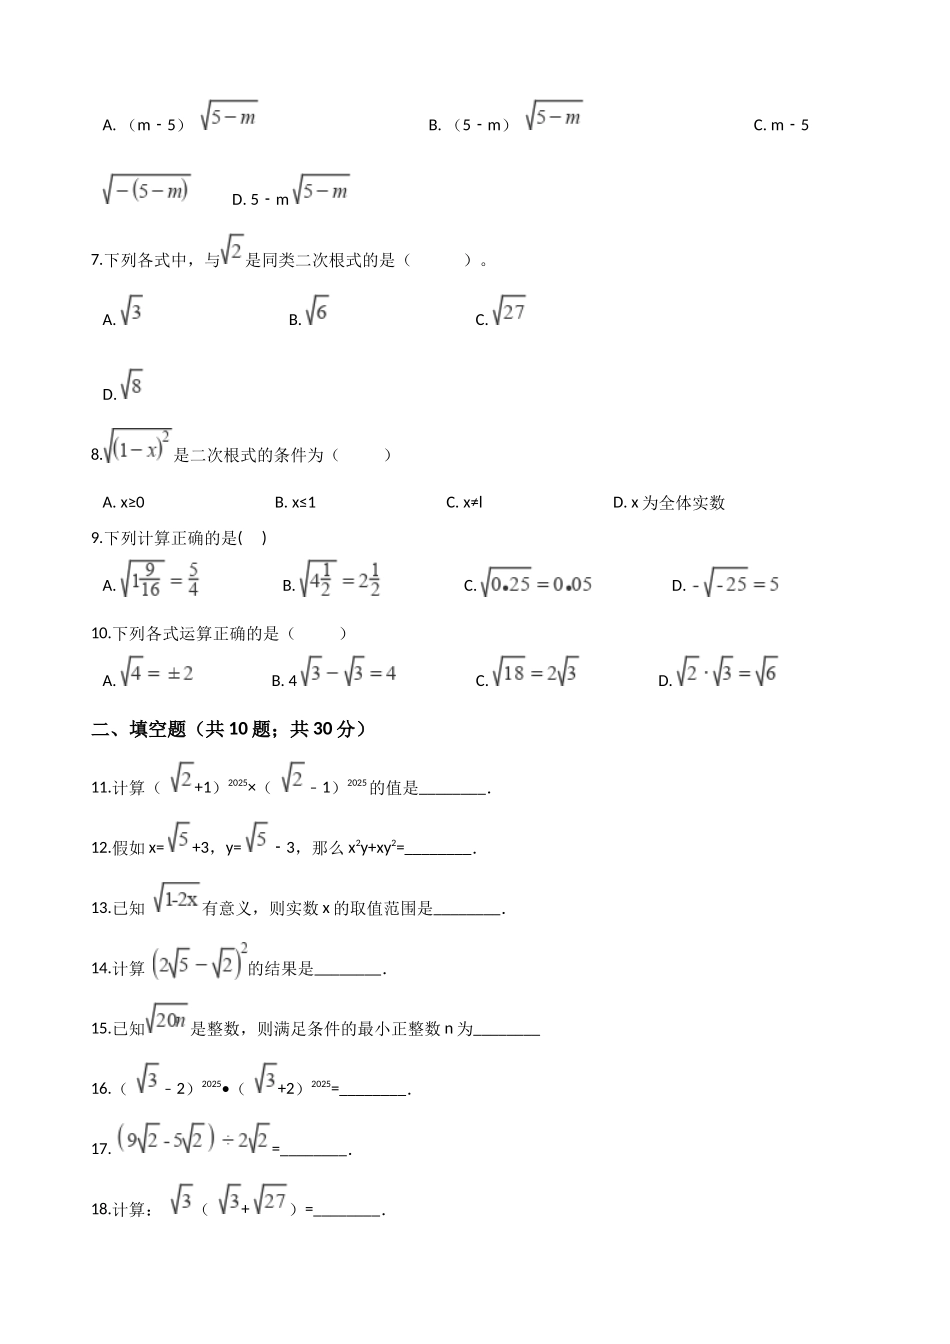 A. （m﹣5） √(5−m) B. （5﹣m） √(5−m) C. m﹣5
√(−(5−m)) D. 5﹣m√(5−m)
7.下列各式中，与√2是同类二次根式的是（ ）。
A.√3 B.√6 C.√27
D.√8
8.√((1−x)²)是二次根式的条件为（ ）
A. x≥0 B. x≤1 C. x≠l D. x为全体实数
9.下列计算正确的是( )
A.√(1 9/16) = 5/4 B.√(4 1/2) = 2 1/2 C.√(0.25) = 0.05 D. -√(-25) = 5
10.下列各式运算正确的是（ ）
A.√4 = ±2 B. 4√3−√3 = 4 C.√18 = 2√3 D.√2·√3 = √6
二、填空题（共10题；共30分）
11.计算（ √2+1）²⁰²⁵×（ √2﹣1）²⁰²⁵的值是________．
12.假如x=√5+3，y=√5﹣3，那么x²y+xy²=________．
13.已知 √(1-2x)有意义，则实数x的取值范围是________．
14.计算 (2√5−√2)²的结果是________．
15.已知√(20n)是整数，则满足条件的最小正整数n为________
16.（ √3﹣2）²⁰²⁵•（ √3+2）²⁰²⁵=________．
17. (9√2-5√2)÷2√2=________．
18.计算： √3（ √3+√27）=________．